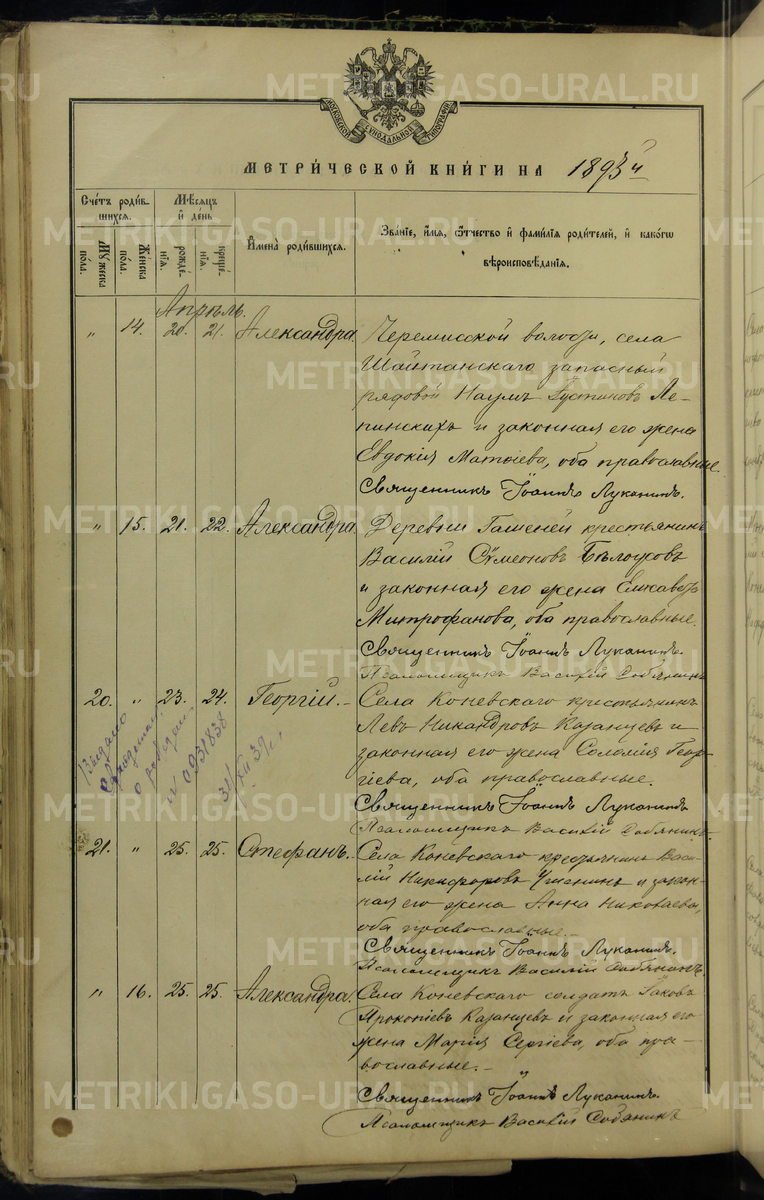 МОСКОВСКОЙ СѴНОДАЛЬНОЙ ТИПОГРАФІИ
МЕТРИ́ЧЕСКОЙ КНИ́ГИ НА 1893й
Счетъ роди́в-
шихся.
Мꙋжеска
пола.
Же́нска
пола.
Мѣсяцъ
и҆ де́нь
рожде́-
нїѧ.
креще́-
нїѧ.
И҆мена̀ роди́вшихся.
Зва́нїе, и҆́мѧ, ѻ҆́тчество и҆ фами́лїѧ роди́телей, и҆ како́гѡ
вѣроисповѣ́данїѧ.
Апрѣль.
„ 14. 20. 21. Александра. Черемисской волости, села
Шайтанскаго запасный
рядовой Наумъ Іустиновъ Ле-
пинскихъ и законная его жена
Евдокія Матѳіева, оба православные.
Священникъ Іоаннъ Луканинъ.
„ 15. 21. 22. Александра. Деревни Гашеней крестьянинъ
Василій Сѵмеоновъ Бѣлоусовъ
и законная его жена Елисавета
Митрофанова, оба православные.
Священникъ Іоаннъ Луканинъ.
Псаломщикъ Василій Собянинъ
20. „ 23. 24. Георгій. Села Коневскаго крестьянинъ
Левъ Никандровъ Казанцевъ и
законная его жена Соломія Геор-
гіева, оба православные.
Священникъ Іоаннъ Луканинъ
Псаломщикъ Василій Собянинъ.
Выдано
о рожден.
№ 0931838
31/XII 39 г.
21. „ 25. 25. Стефанъ. Села Коневскаго крестьянинъ Васи-
лій Никифоровъ и закон-
ная его жена Анна Николаева,
оба православные.
Священникъ Іоаннъ Луканинъ.
Псаломщикъ Василій Собянинъ.
„ 16. 25. 25. Александра. Села Коневскаго солдатъ Іаковъ
Прокопіевъ Казанцевъ и законная его
жена Марія Сергіева, оба пра-
вославные.
Священникъ Іоаннъ Луканинъ.
Псаломщикъ Василій Собянинъ
METRIKI.GASO-URAL.RU